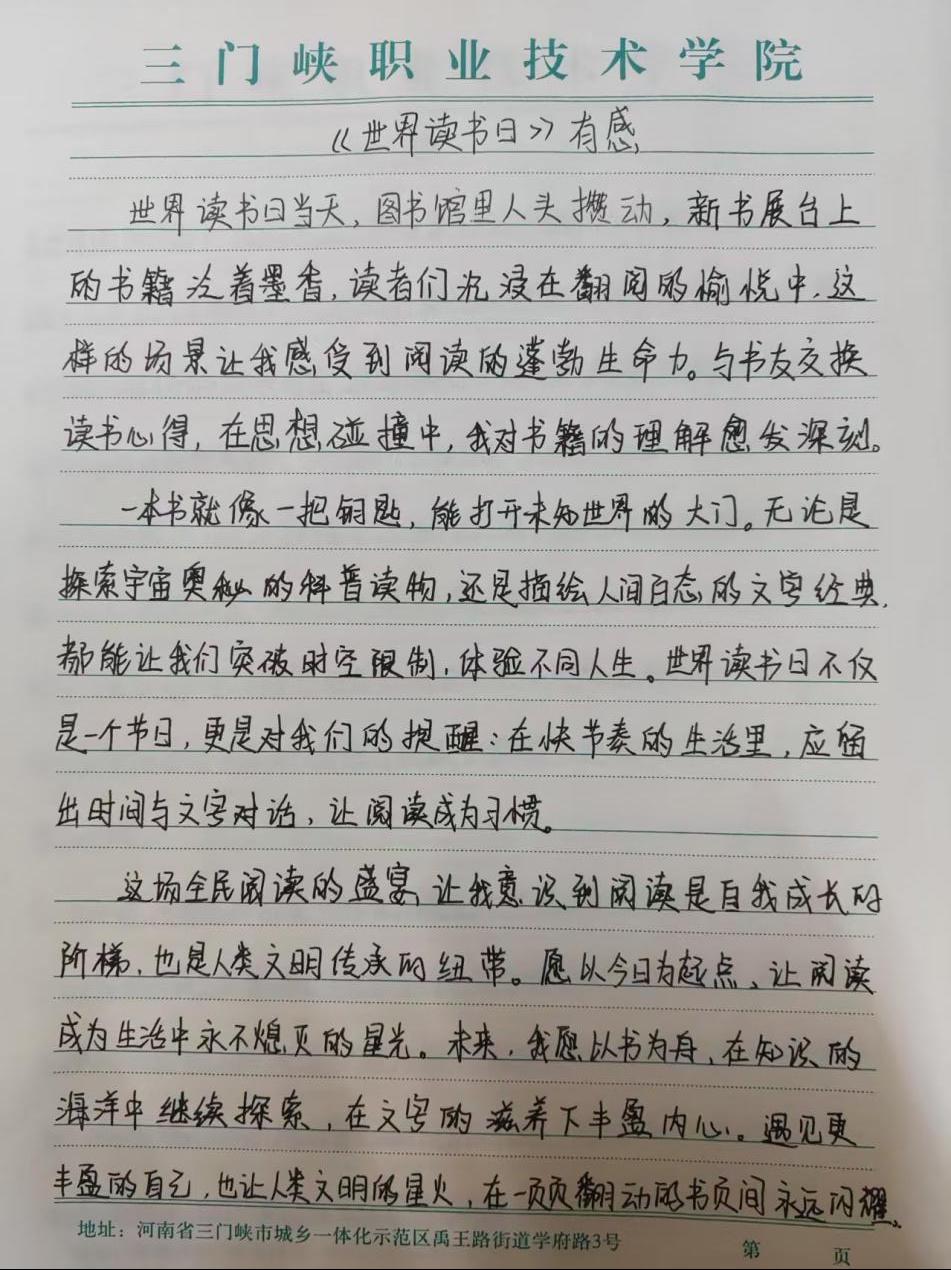 三门峡职业技术学院
《世界读书日》有感
世界读书日当天，图书馆里人头攒动，新书展台上
的书籍泛着墨香，读者们沉浸在翻阅的愉悦中，这
样的场景让我感受到阅读的蓬勃生命力。与书友交换
读书心得，在思想碰撞中，我对书籍的理解愈发深刻。
一本书就像一把钥匙，能打开未知世界的大门。无论是
探索宇宙奥秘的科普读物，还是描绘人间百态的文字经典，
都能让我们突破时空限制，体验不同人生。世界读书日不仅
是一个节日，更是对我们的提醒：在快节奏的生活里，应留
出时间与文字对话，让阅读成为习惯。
这场全民阅读的盛宴让我意识到阅读是自我成长的
阶梯，也是人类文明传承的纽带。愿以今日为起点，让阅读
成为生活中永不熄灭的星光。未来，我愿以书为舟，在知识的
海洋中继续探索，在文字的滋养下丰盈内心。遇见更
丰盈的自己，也让人类文明的星火，在一页页翻动的书页间永远闪耀。
地址：河南省三门峡市城乡一体化示范区禹王路街道学府路3号
第 页